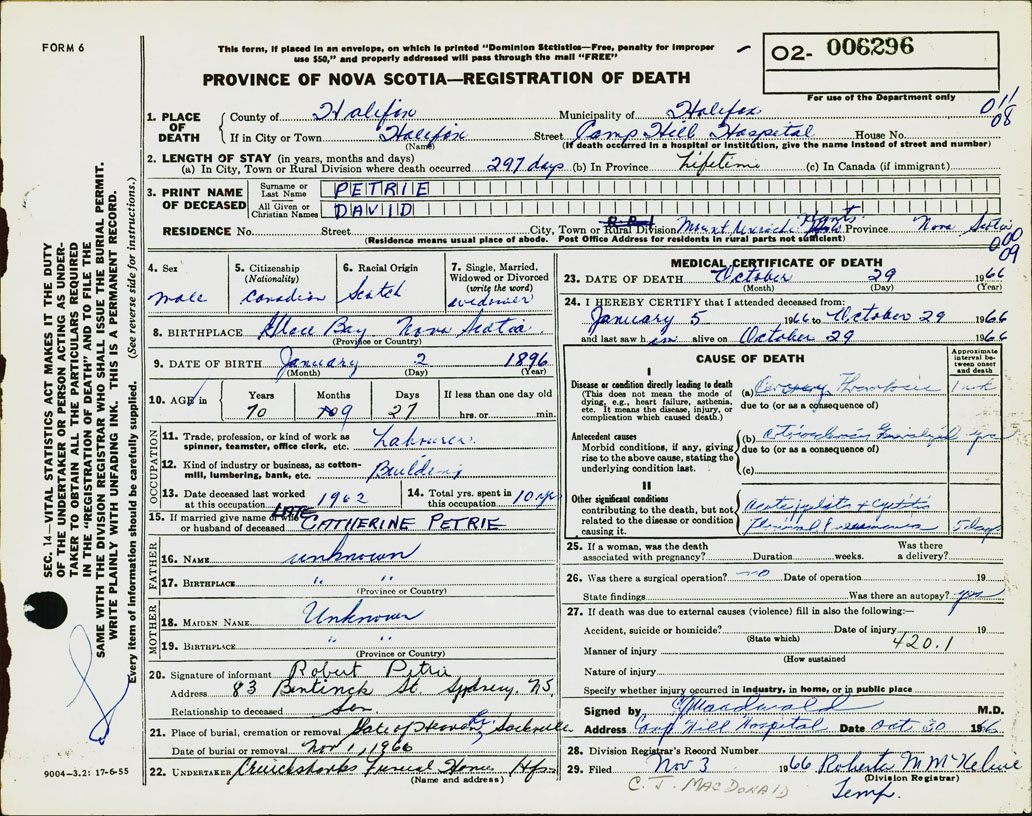 FORM 6
This form, if placed in an envelope, on which is printed "Dominion Statistics—Free, penalty for improper
use $50," and properly addressed will pass through the mail "FREE"
PROVINCE OF NOVA SCOTIA—REGISTRATION OF DEATH
02- 006296
For use of the Department only
011
08
1. PLACE OF DEATH County of Halifax Municipality of Halifax
If in City or Town Halifax Street Camp Hill Hospital House No.
(Name) (If death occurred in a hospital or institution, give the name instead of street and number)
2. LENGTH OF STAY (in years, months and days)
(a) In City, Town or Rural Division where death occurred 297 days (b) In Province Lifetime (c) In Canada (if immigrant)
3. PRINT NAME OF DECEASED
Surname or Last Name PETRIE
All Given or Christian Names DAVID
RESIDENCE No. Street City, Town or Rural Division Mount Uniacke Hants Province Nova Scotia
(Residence means usual place of abode. Post Office Address for residents in rural parts not sufficient)
000
09
4. Sex
male
5. Citizenship
(Nationality)
Canadian
6. Racial Origin
Scotch
7. Single, Married,
Widowed or Divorced
(write the word)
widower
8. BIRTHPLACE Glace Bay Nova Scotia
(Province or County)
9. DATE OF BIRTH January 2 1896
(Month) (Day) (Year)
10. AGE in Years Months Days If less than one day old
70 9 27 hrs. or min.
OCCUPATION
11. Trade, profession, or kind of work as
spinner, teamster, office clerk, etc. Labourer
12. Kind of industry or business, as cotton-
mill, lumbering, bank, etc. Building
13. Date deceased last worked
at this occupation 1962
14. Total yrs. spent in
this occupation 10 yrs
15. If married give name of wife
or husband of deceased LATE CATHERINE PETRIE
FATHER
16. NAME unknown
17. BIRTHPLACE " "
(Province or Country)
MOTHER
18. MAIDEN NAME Unknown
19. BIRTHPLACE " "
(Province or Country)
20. Signature of informant Robert Petrie
Address 83 Bentinck St Sydney, N.S.
Relationship to deceased Son
21. Place of burial, cremation or removal Gate of Heaven Sackville
Date of burial or removal Nov 1, 1966
22. UNDERTAKER Cruickshanks Funeral Home Hfx
(Name and address)
MEDICAL CERTIFICATE OF DEATH
23. DATE OF DEATH October 29 1966
(Month) (Day) (Year)
24. I HEREBY CERTIFY that I attended deceased from:
January 5 1966 to October 29 1966
and last saw him alive on October 29 1966
CAUSE OF DEATH
Approximate
interval between
onset
and death
I
Disease or condition directly leading to death
(This does not mean the mode of
dying, e.g., heart failure, asthenia,
etc. It means the disease, injury, or
complication which caused death.)
(a) Coronary Thrombosis 1 wk
due to (or as a consequence of)
Antecedent causes
Morbid conditions, if any, giving
rise to the above cause, stating the
underlying condition last.
(b) yrs
due to (or as a consequence of)
(c)
II
Other significant conditions
contributing to the death, but not
related to the disease or condition
causing it.
Acute
5 days
25. If a woman, was the death
associated with pregnancy? Duration weeks. Was there
a delivery?
26. Was there a surgical operation? no Date of operation 19
State findings Was there an autopsy? yes
27. If death was due to external causes (violence) fill in also the following:—
Accident, suicide or homicide? Date of injury 19
(State which)
420.1
Manner of injury
(How sustained
Nature of injury
Specify whether injury occurred in industry, in home, or in public place
Signed by M.D.
Address Camp Hill Hospital Date Oct 30 1966
28. Division Registrar's Record Number
29. Filed Nov 3 1966 Roberta M
(Division Registrar)
Temp.
C. J. MACDONALD
SEC. 14—VITAL STATISTICS ACT MAKES IT THE DUTY
OF THE UNDERTAKER OR PERSON ACTING AS UNDER-
TAKER TO OBTAIN ALL THE PARTICULARS REQUIRED
IN THE "REGISTRATION OF DEATH" AND TO FILE THE
SAME WITH THE DIVISION REGISTRAR WHO SHALL ISSUE THE BURIAL PERMIT.
WRITE PLAINLY WITH UNFADING INK. THIS IS A PERMANENT RECORD.
Every item of information should be carefully supplied. (See reverse side for instructions.)
9004-3.2: 17-6-55